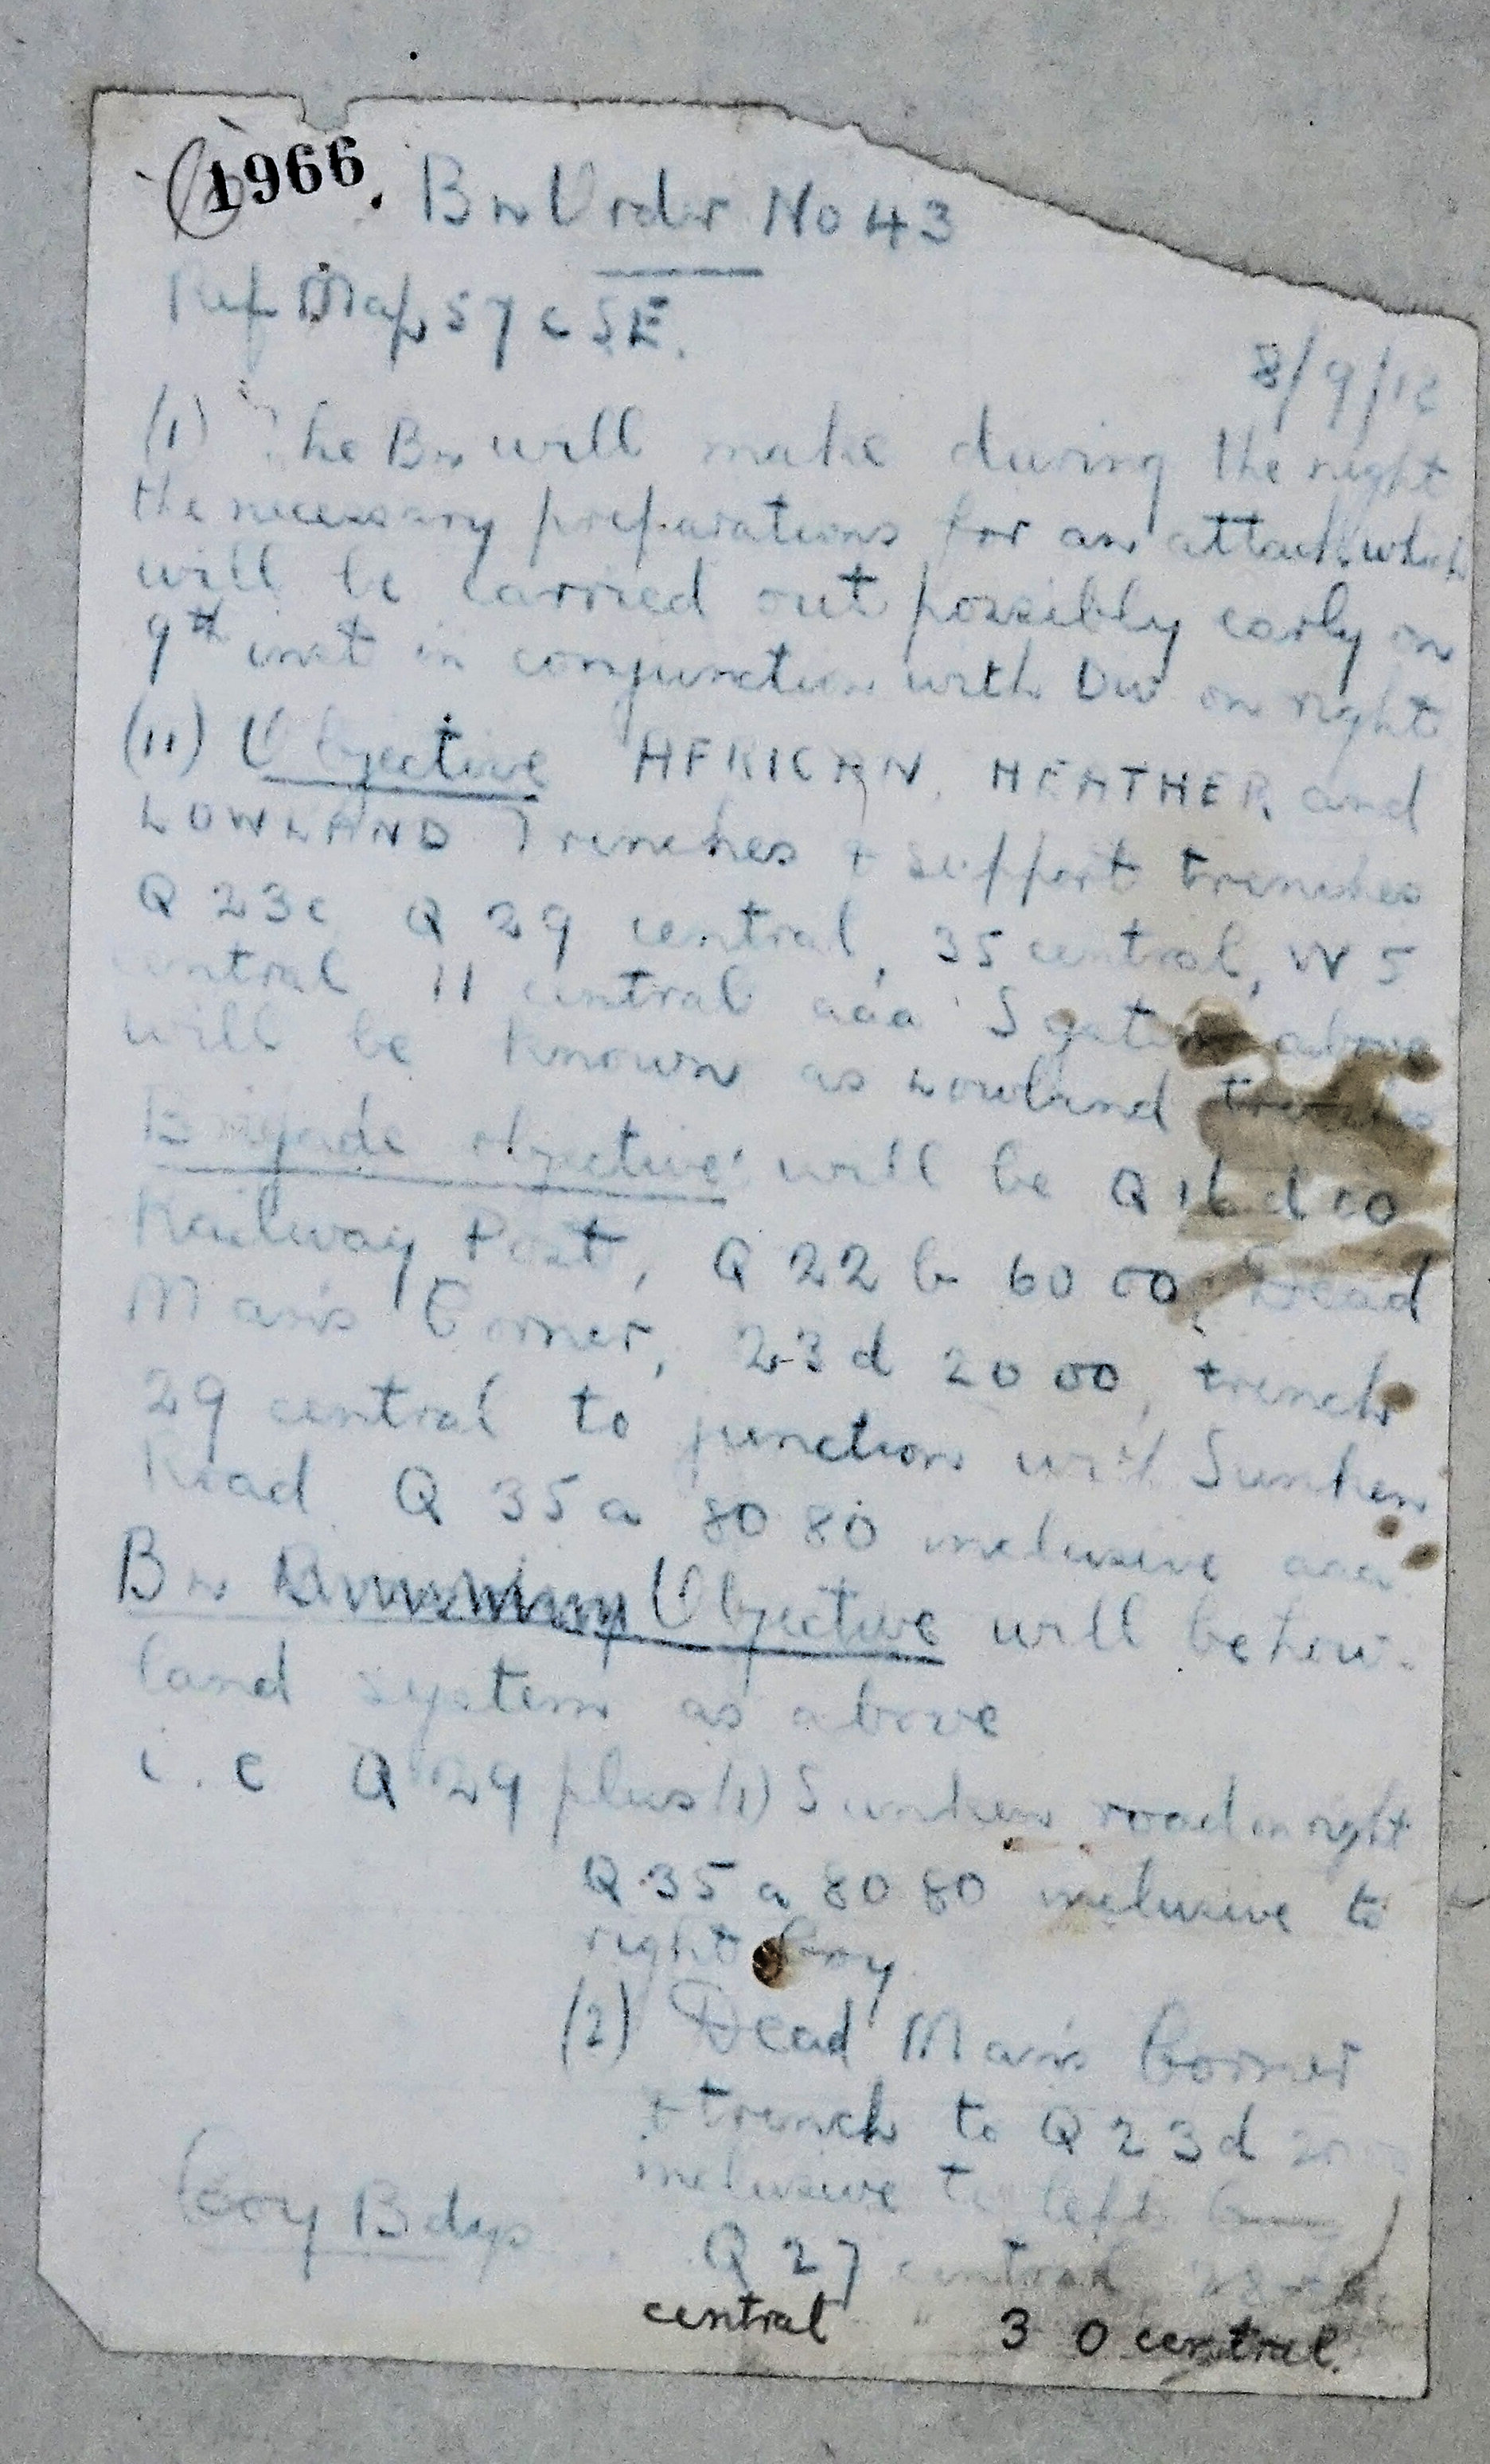 1966.
Bn Order No 43
Ref Map 57 c SE.
8/9/18
(1) The Bn will make during the night
the necessary preparations for an attack which
will be carried out possibly early on
9th inst in conjunction with Div on right
(11) Objective AFRICAN, HEATHER, and
LOWLAND Trenches + support trenches
Q 23c Q 29 central, 35 central, W 5
central 11 central aaa S of above
will be known as Lowland trenches
Brigade objective will be Q 16 d 00
Railway Post, Q 22 b 60 00, Dead
Man's Corner, 23 d 20 00, trench
29 central to junction with Sunken
Road Q 35 a 80 80 inclusive aaa
Bn Objective will be Low-
land system as above
i.e Q 29 plus (1) Sunken road on right
Q 35 a 80 80 inclusive to
right Coy
(2) Dead Man's Corner
+ trench to Q 23 d 20
inclusive to left
Coy Bdys Q 27 central 28
central 30 central.